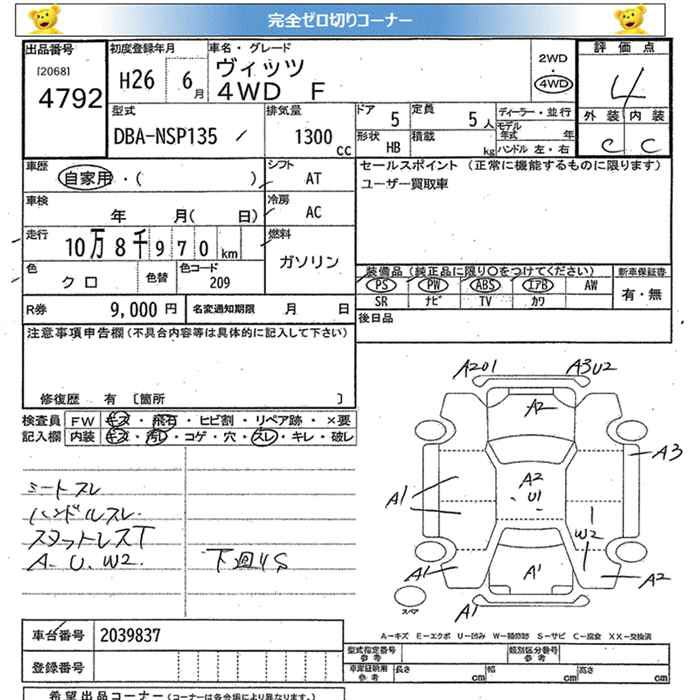 完全ゼロ切りコーナー
出品番号
[2068]
4792
初度登録年月
H26 6月
車名・グレード
ヴィッツ
4WD F
2WD
・
4WD
評価点
4
外装 内装
C C
型式
DBA-NSP135
排気量
1300 cc
ドア 5
定員 5人
形状 HB
積載 kg
ディーラー・並行
モデル年式 年
ハンドル 左・右
車歴
自家用・( )
シフト
AT
車検
年 月( 日)
冷房
AC
走行
10万8千970km
燃料
ガソリン
色
クロ
色替
色コード
209
R券 9,000円
名変通知期限 月 日
セールスポイント (正常に機能するものに限ります)
ユーザー買取車
装備品(純正品に限り○をつけてください)
PS PW ABS エアB AW
SR ナビ TV カワ
新車保証書
有・無
後日品
注意事項申告欄(不具合内容等は具体的に記入して下さい)
修復歴 有 〔箇所 〕
検査員 FW キズ・飛石・ヒビ割・リペア跡・×要
記入欄 内装 キズ・汚レ・コゲ・穴・スレ・キレ・破レ
シートスレ
ハンドルスレ
スタットレスT
A.U.W2.
下廻りS
A201
A3U2
A2
A2
U1
A3
A1
W2
A1
A1
A2
A1
スペア
A-キズ E-エクボ U-凹み W-補修跡 S-サビ C-腐食 XX-交換済
車台番号 2039837
登録番号
型式指定番号
参考
類別区分番号
参考
車庫証明用
参考
長さ cm
幅 cm
高さ cm
希望出品コーナー(コーナーは各会場により異なります。)